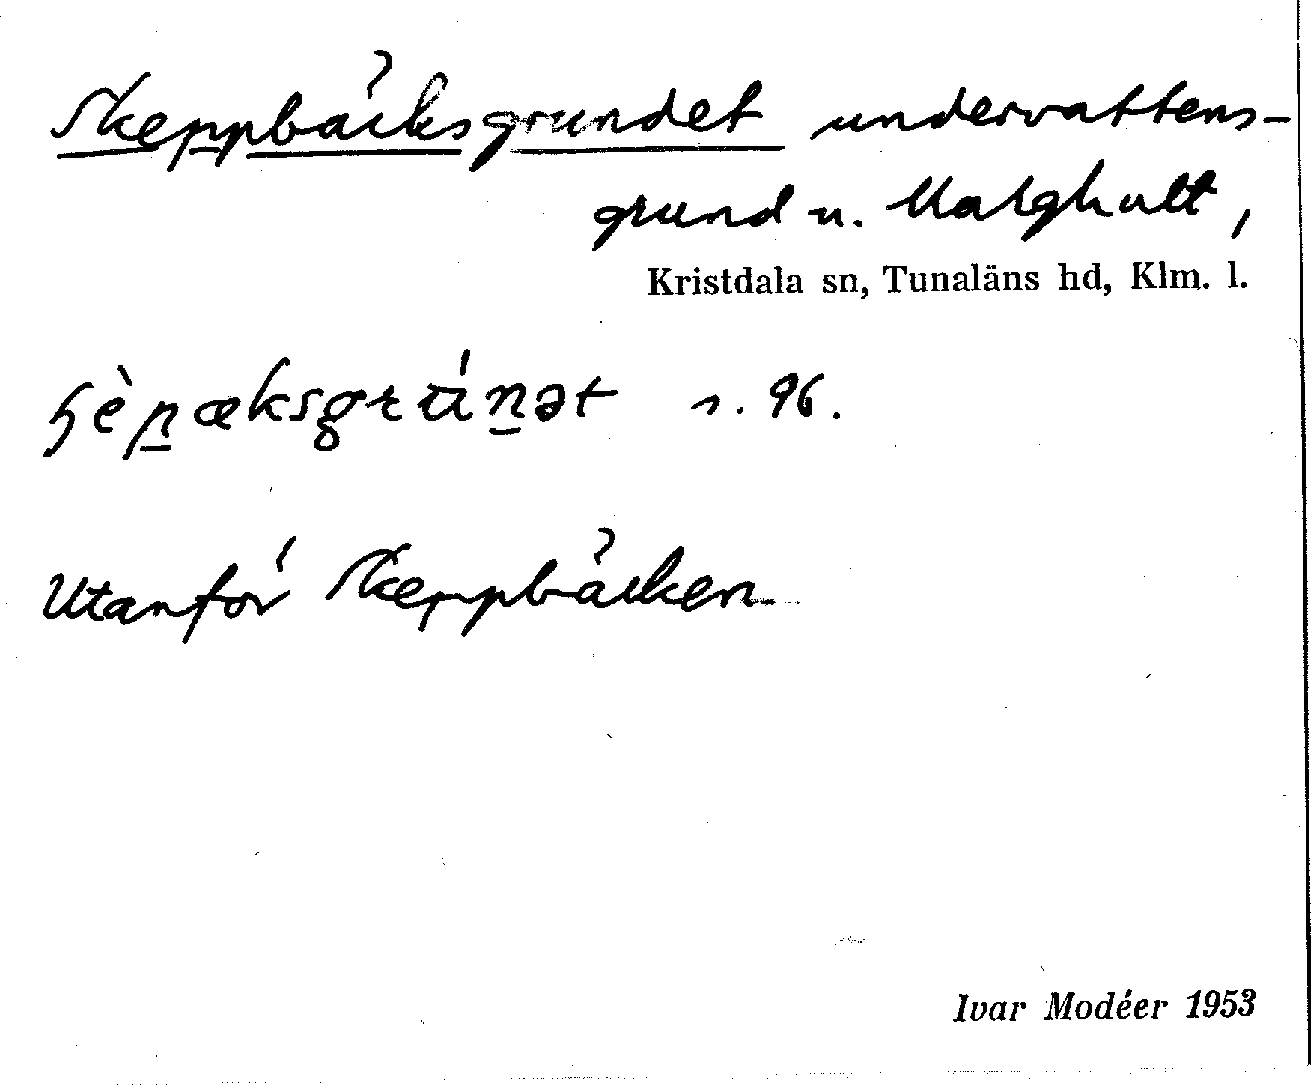 Skeppbäcksgrundet undervattens-
grund u. Malghult,
Kristdala sn, Tunaläns hd, Klm. l.
s. 96.
Utanför Skeppbäcken
Ivar Modéer 1953